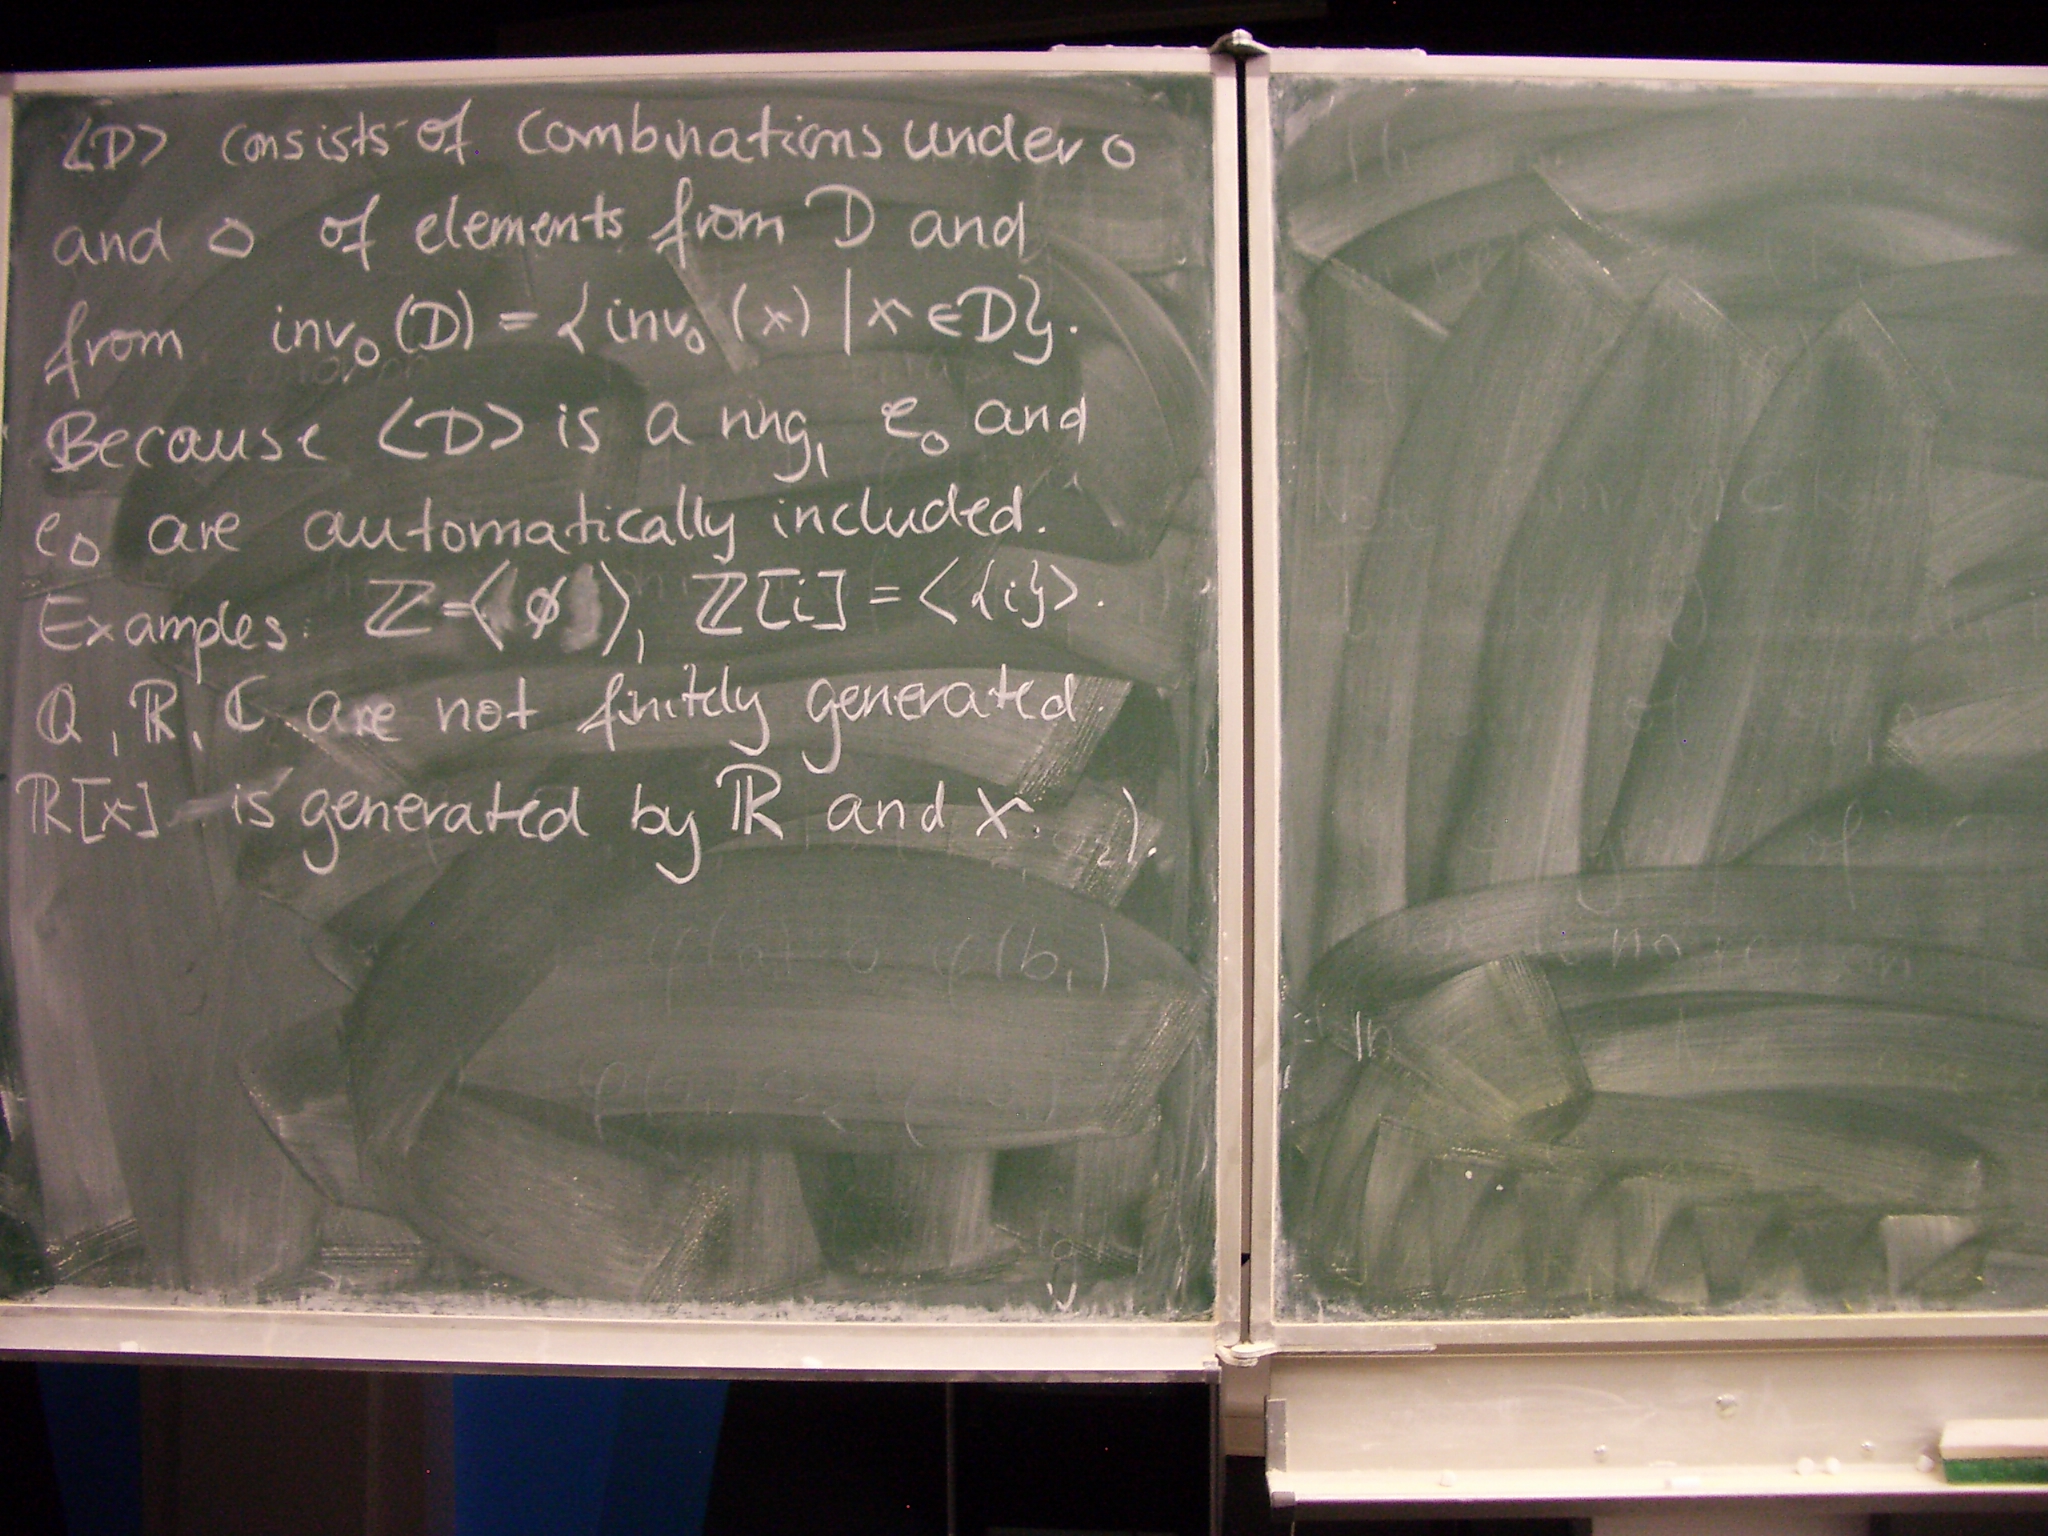 <D> consists of combinations under o
and □ of elements from D and
from inv₀(D) = {inv₀(x) | x ∈ D}.
Because <D> is a ring, e₀ and
e□ are automatically included.
Examples: ℤ = <∅>, ℤ[i] = <{i}>.
ℚ, ℝ, ℂ are not finitely generated.
ℝ[x] is generated by ℝ and x. ).
φ(b₁)